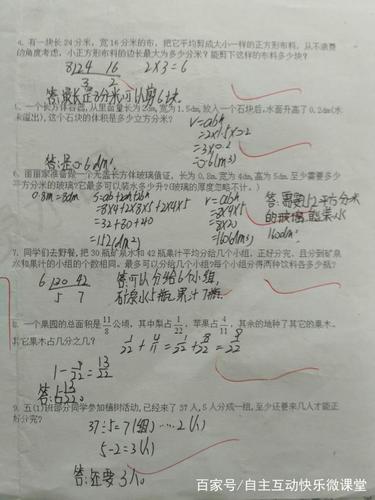 4. 有一块长24分米,宽16分米的布,把它平均剪成大小一样的正方形布料,从不浪费
的角度考虑,小正方形布料的边长最大为多少分米?能剪下这样的布料多少块?
8 24 16 2×3=6
3 2
答:最长是8分米,可以剪6块.
一个长方体容器,从里面量长为2dm,宽为1.5dm,放入一个石块后,水面升高了0.2dm(水
未溢出),这个石块的体积是多少立方分米?
V=abh
=2×1.5×0.2
=3×0.2
=0.6(m3)
答:是0.6dm³.
6. 丽丽家准备做一个无盖长方体玻璃鱼缸,长为0.8m,宽为4dm,高为5dm.至少需要多少
平方分米的玻璃?它最多可以装水多少升?(玻璃的厚度忽略不计。)
0.8m=8dm S=ab+2ah+2bh V=abh 答:需要152平方分米
=8×4+2×8×5+2×4×5 =8×4×5 的玻璃,能装水
=32+80+40 =8×20 160dm³.
=152(dm²) =160(dm³)
7. 同学们去野餐,把30瓶矿泉水和42瓶果汁平均分给几个小组,正好分完,且分到矿泉
水和果汁的小组的个数相同,最多可以分给几个小组?每个小组分得两种饮料各多少瓶?
6 30 42 答:可以分给6个小组,
5 7 矿泉水5瓶,果汁7瓶.
8. 一个果园的总面积是11/8公顷,其中梨占1/22,苹果占4/11,其余的地种了其它的果木,
其它果木占几分之几?
1/22+4/11=1/22+8/22=9/22
1-9/22=13/22
答:占13/22.
9. 五(1)班部分同学参加植树活动,已经来了37人,5人分成一组,至少还要来几人才能正
好分完?
37÷5=7(组)……2(人)
5-2=3(人)
答:还要3人.
百家号/自主互动快乐微课堂